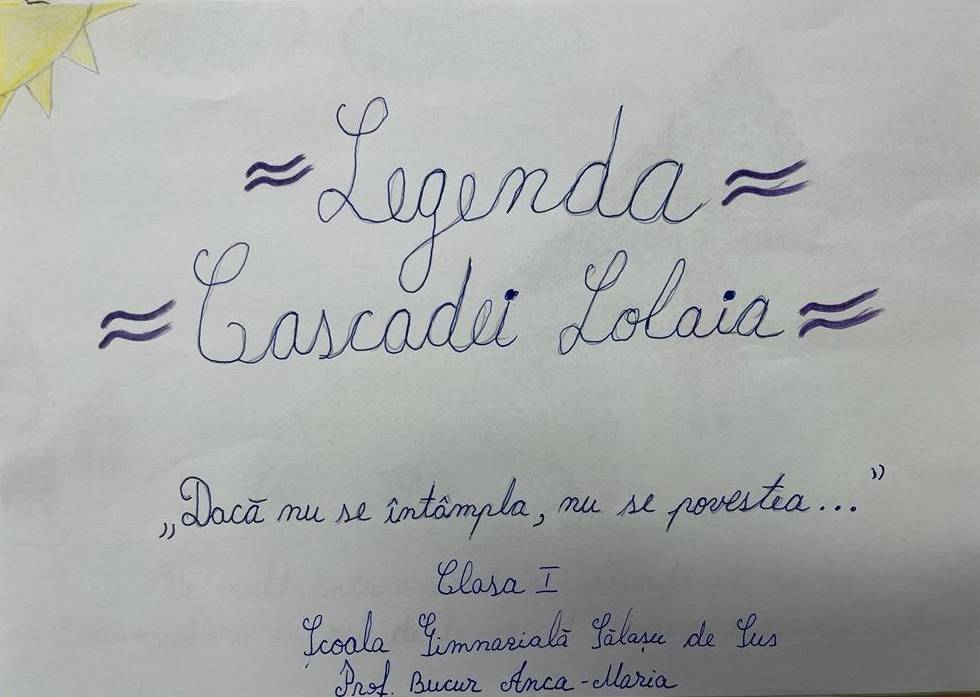 Legenda
Cascadei Lolaia
„Dacă nu se întâmpla, nu se povestea..."
Clasa I
Școala Gimnazială Sălașu de Sus
Prof. Bucur Anca-Maria